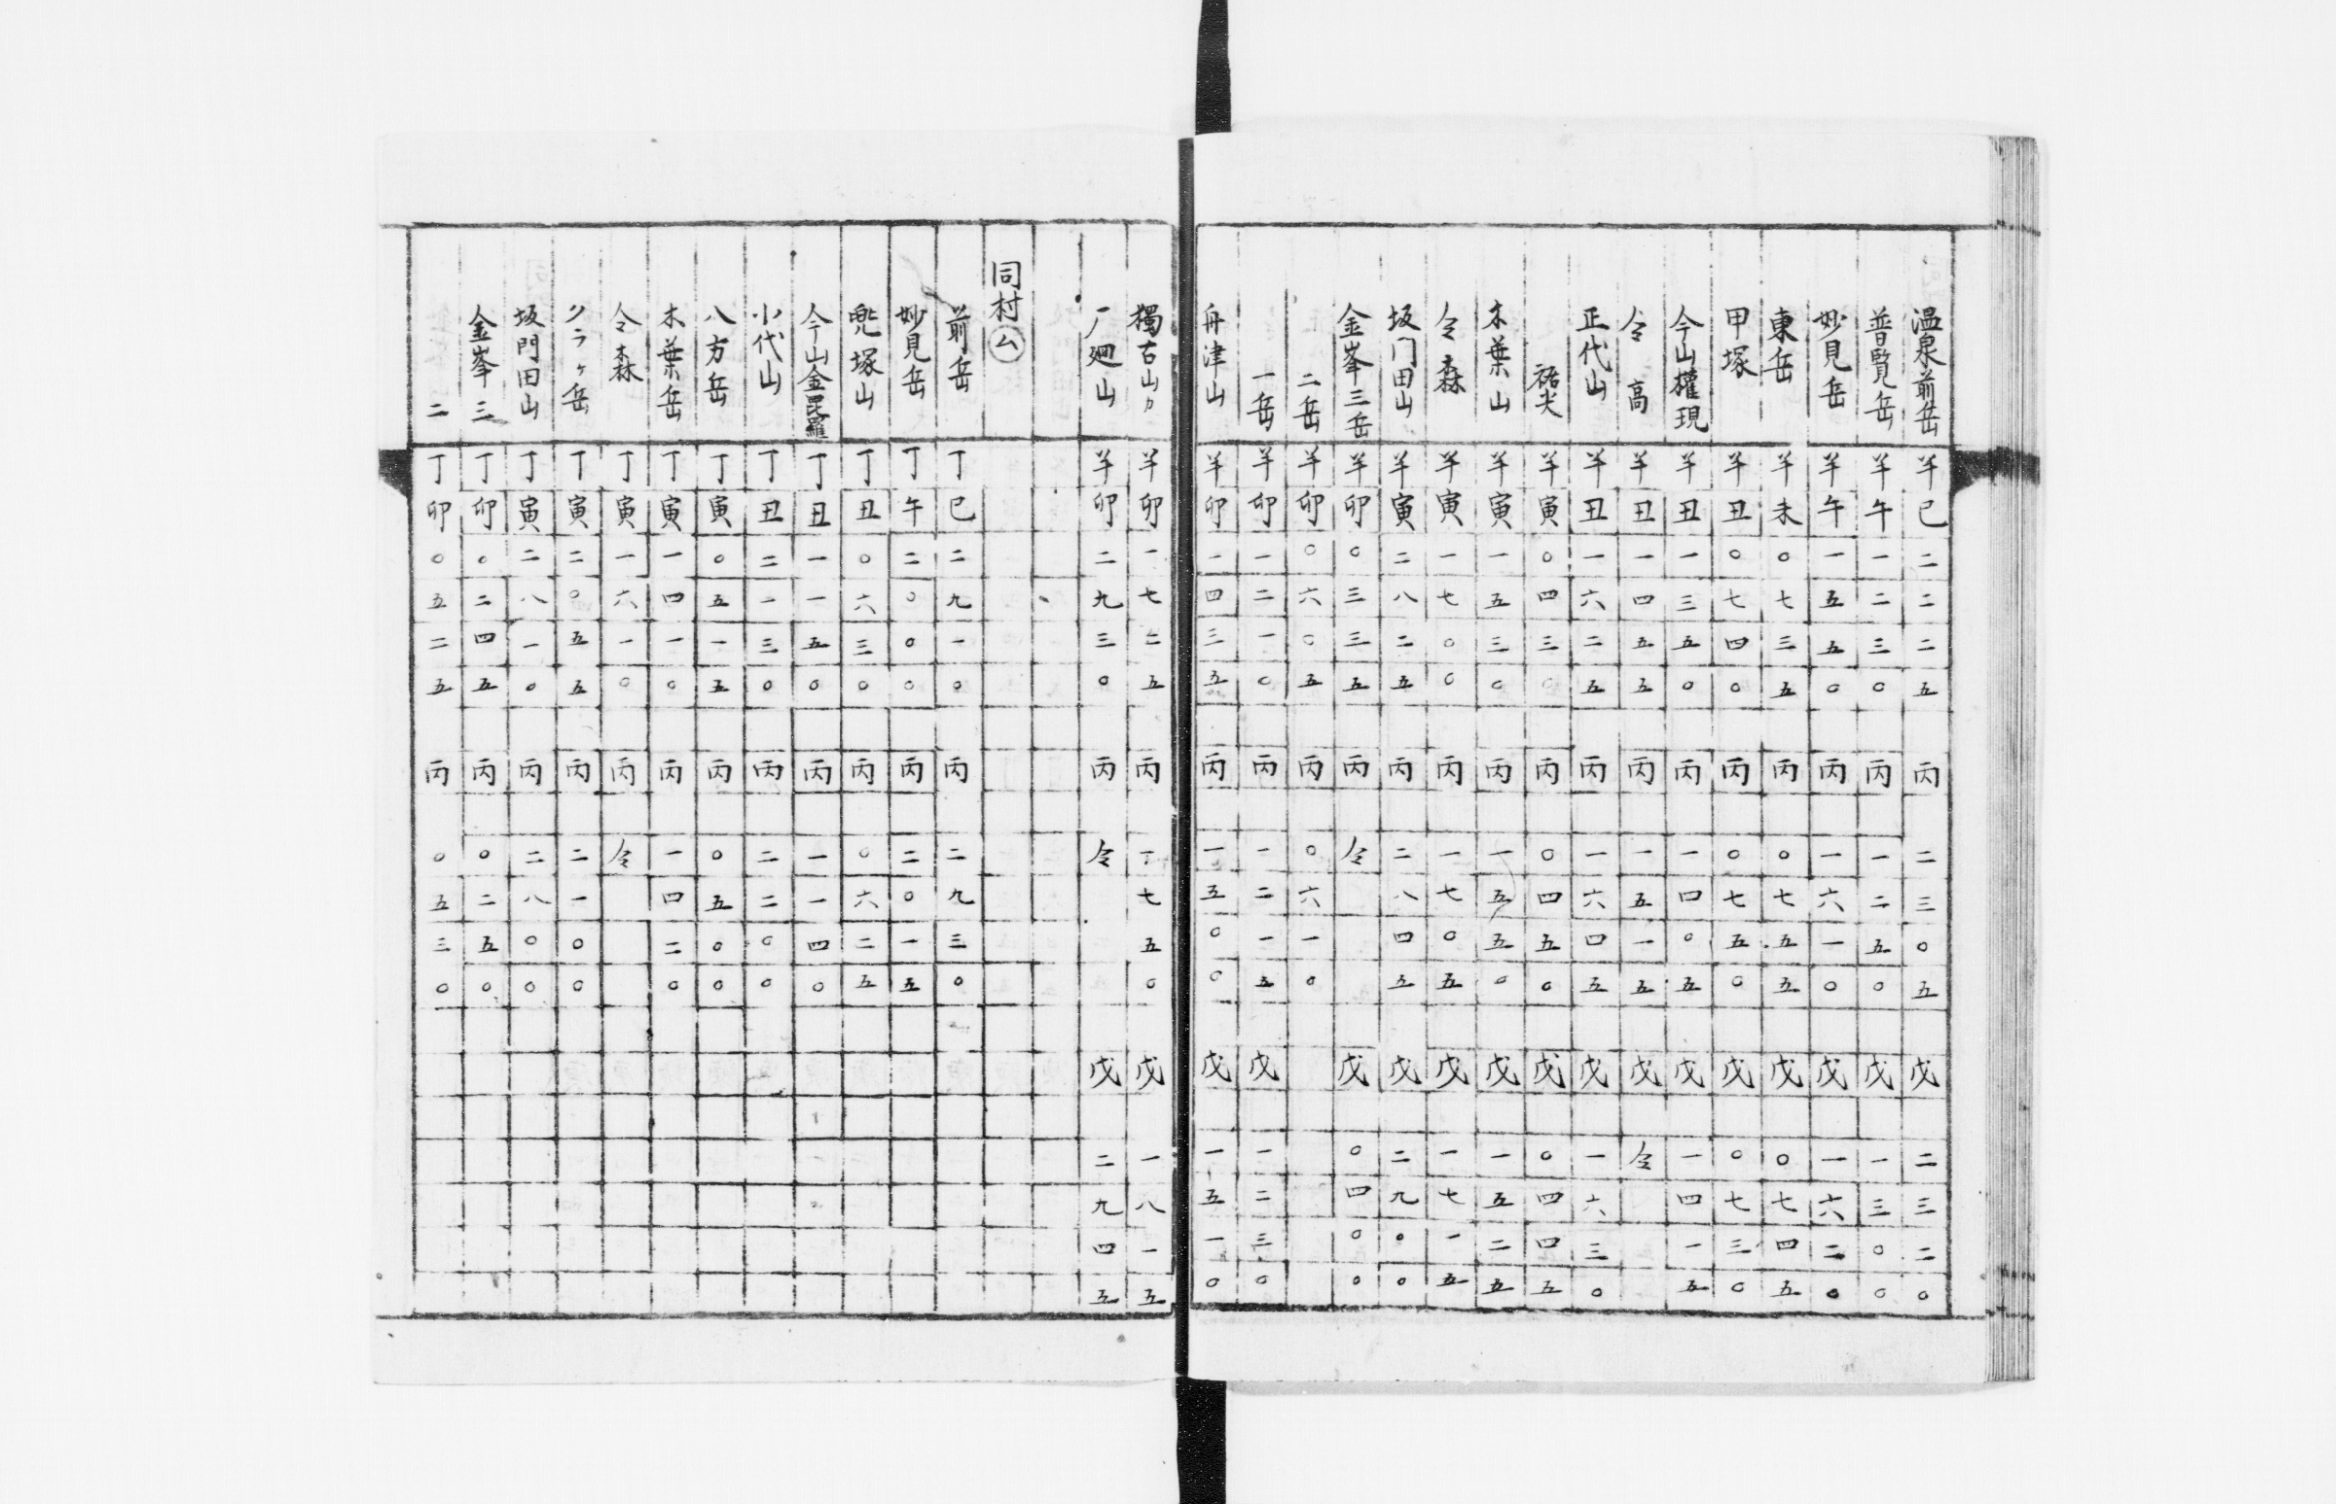 温泉前岳 羊巳二二二五 丙 二三〇五 戊 二三二〇
普賢岳 羊午一二三〇 丙 一二五〇 戊 一三〇〇
妙見岳 羊午一五五〇 丙 一六一〇 戊 一六二〇
東岳 羊未〇七三五 丙 〇七五五 戊 〇七四五
甲塚 羊丑〇七四〇 丙 〇七五〇 戊 〇七三〇
今山權現 羊丑一三五〇 丙 一四〇五 戊 一四一五
仝高 羊丑一四五五 丙 一五一五 戊 仝
正代山 羊丑一六二五 丙 一六四五 戊 一六三〇
祐尖 羊寅〇四三〇 丙 〇四五〇 戊 〇四四五
木葉山 羊寅一五三〇 丙 一五五〇 戊 一五二五
仝森 羊寅一七〇〇 丙 一七〇五 戊 一七一五
坂门田山 羊寅二八二五 丙 二八四五 戊 二九〇〇
金峯三岳 羊卯〇三三五 丙 仝 戊 〇四〇〇
二岳 羊卯〇六〇五 丙 〇六一〇
一岳 羊卯一二一〇 丙 一二一五 戊 一二三〇
舟津山 羊卯一四三五 丙 一五〇〇 戊 一五一〇
獨古山カ 羊卯一七二五 丙 一七五〇 戊 一八一五
廻山 羊卯二九三〇 丙 仝 戊 二九四五
同村㋰
前岳 丁巳二九一〇 丙 二九三〇
妙見岳 丁午二〇〇〇 丙 二〇一五
兜塚山 丁丑〇六三〇 丙 〇六二五
今山金毘羅 丁丑一一五〇 丙 一一四〇
小代山 丁丑二一三〇 丙 二二〇〇
八方岳 丁寅〇五一五 丙 〇五〇〇
木葉岳 丁寅一四一〇 丙 一四二〇
仝森 丁寅一六一〇 丙 仝
クラヶ岳 丁寅二〇五五 丙 二一〇〇
坂門田山 丁寅二八一〇 丙 二八〇〇
金峯三 丁卯〇二四五 丙 〇二五〇
二 丁卯〇五二五 丙 〇五三〇